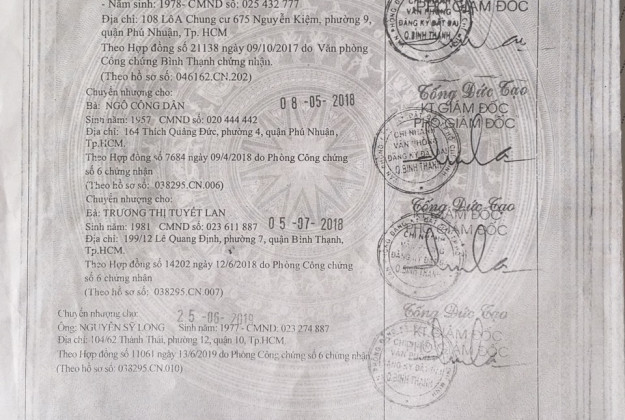 - Năm sinh: 1978- CMND số: 025 432 777
Địa chỉ: 108 Lô A Chung cư 675 Nguyễn Kiệm, phường 9,
quận Phú Nhuận, Tp. HCM
Theo Hợp đồng số 21138 ngày 09/10/2017 do Văn phòng
Công chứng Bình Thạnh chứng nhận.
(Theo hồ sơ số: 046162.CN.202)
PHÓ GIÁM ĐỐC
VĂN PHÒNG
ĐĂNG KÝ ĐẤT ĐAI
Q.BÌNH THẠNH
Chuyển nhượng cho:
Bà: NGÔ CÔNG DÂN
08-05-2018
Sinh năm: 1957 CMND số: 020 444 442
Địa chỉ: 164 Thích Quảng Đức, phường 4, quận Phú Nhuận,
Tp.HCM.
Theo Hợp đồng 7684 ngày 09/4/2018 do Phòng Công chứng
số 6 chứng nhận
(Theo hồ sơ số: 038295.CN.006)
Tống Đức Tạo
KT.GIÁM ĐỐC
PHÓ GIÁM ĐỐC
CHI NHÁNH
VĂN PHÒNG
ĐĂNG KÝ ĐẤT ĐAI
Q.BÌNH THẠNH
Chuyển nhượng cho:
Bà: TRƯƠNG THỊ TUYẾT LAN
05-07-2018
Sinh năm: 1981 CMND số: 023 611 887
Địa chỉ: 199/12 Lê Quang Định, phường 7, quận Bình Thạnh,
Tp.HCM.
Theo Hợp đồng số 14202 ngày 12/6/2018 do Phòng Công chứng
số 6 chứng nhận
(Theo hồ sơ số: 038295.CN.007)
Tống Đức Tạo
KT.GIÁM ĐỐC
PHÓ GIÁM ĐỐC
Chuyển nhượng cho:
25-06-2019
Ông: NGUYỄN SỸ LONG Sinh năm: 1977 - CMND: 023 274 887
Địa chỉ: 104/62 Thành Thái, phường 12, quận 10, Tp.HCM
Theo Hợp đồng số 11061 ngày 13/6/2019 do Phòng Công chứng số 6 chứng nhận
(Theo hồ sơ số: 038295.CN.010)
Tống Đức Tạo
KT.GIÁM ĐỐC
PHÓ GIÁM ĐỐC
Q.BÌNH THẠNH